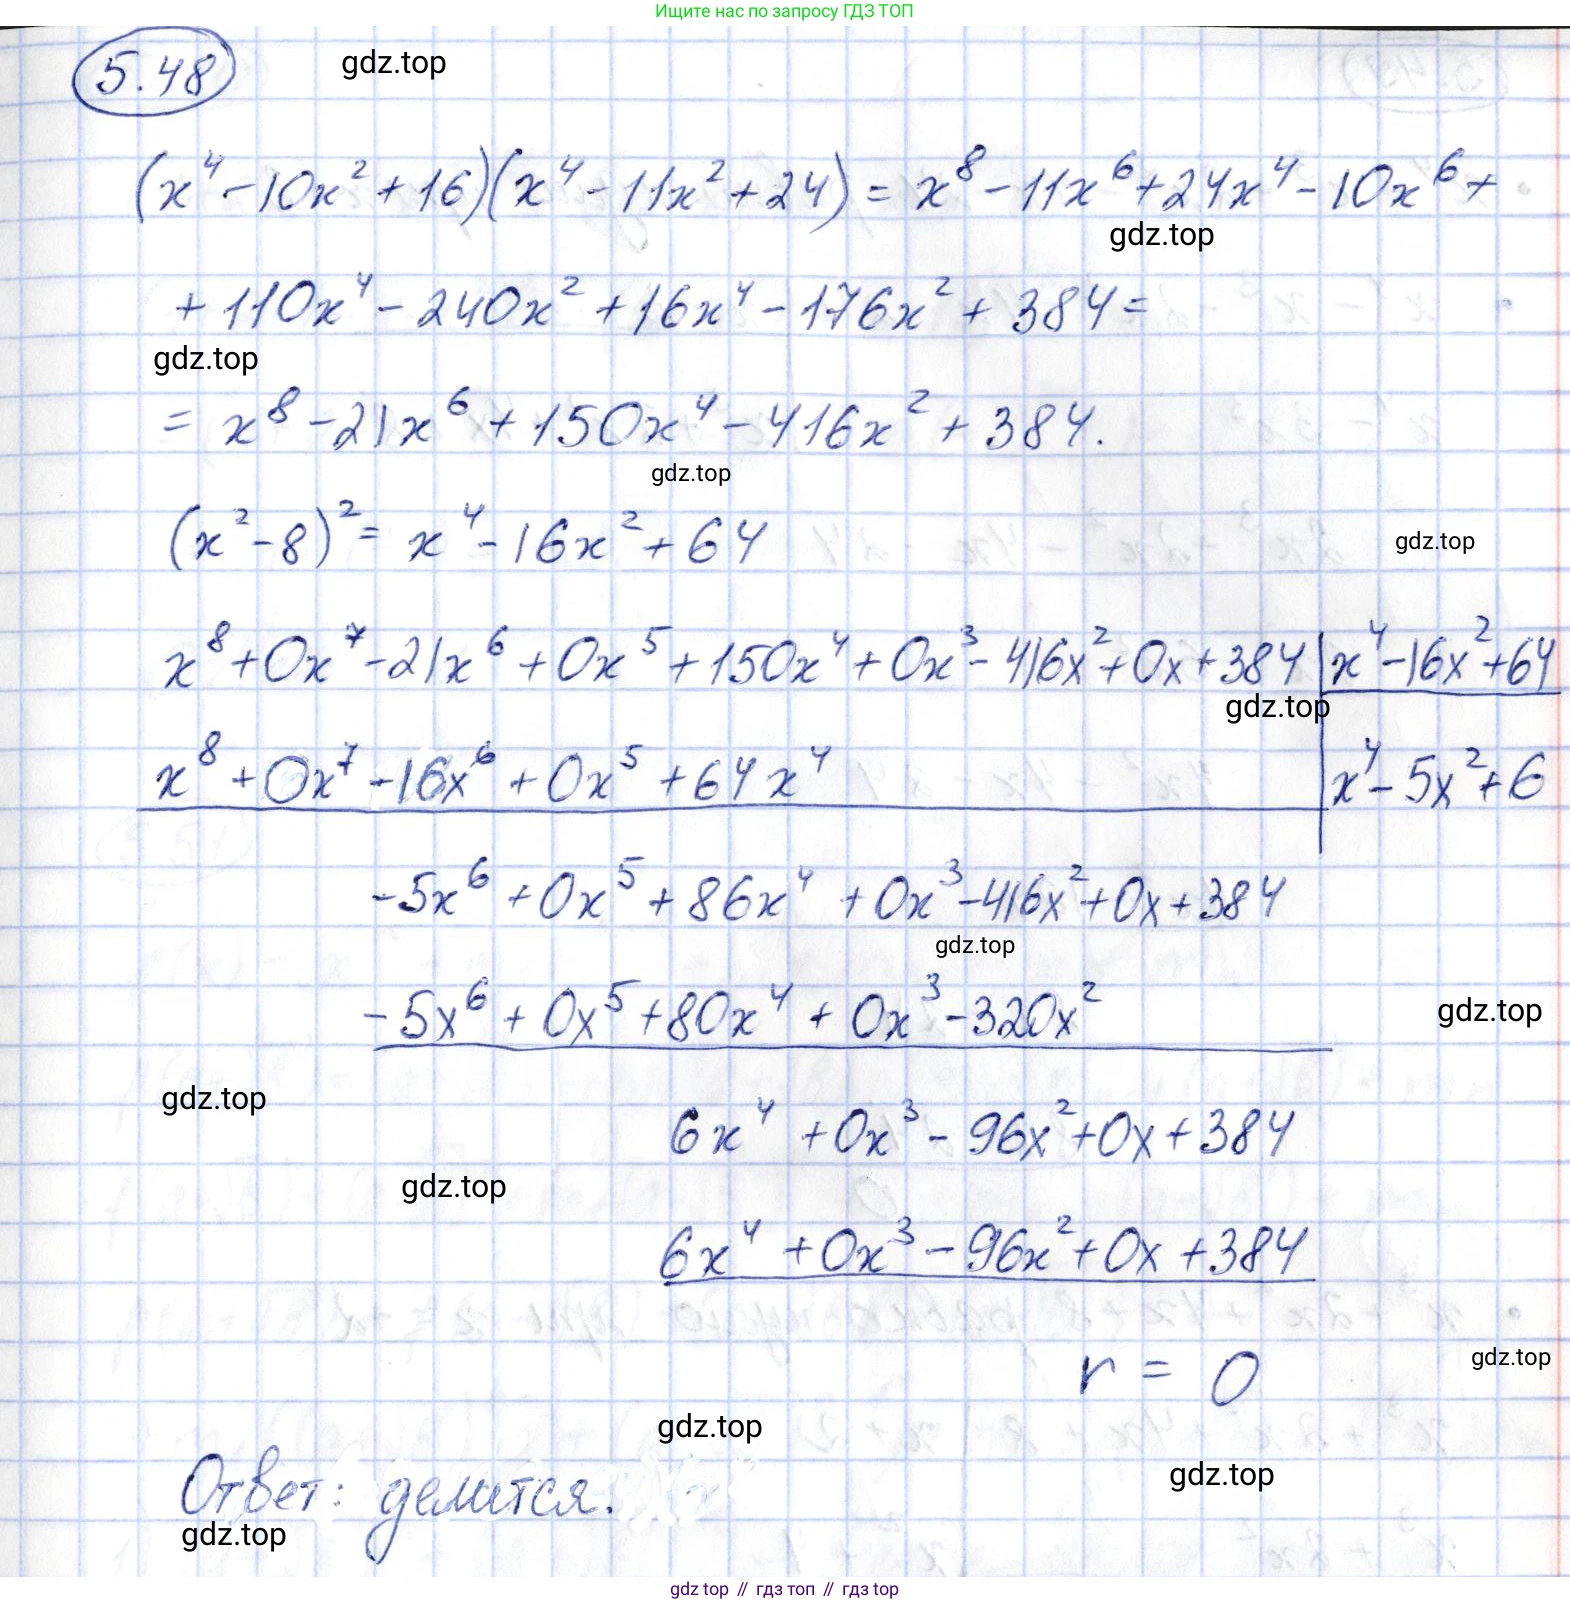 Ищите нас по запросу ГДЗ ТОП
5.48
gdz.top
(x⁴ - 10x² + 16)(x⁴ - 11x² + 24) = x⁸ - 11x⁶ + 24x⁴ - 10x⁶ +
gdz.top
+ 110x⁴ - 240x² + 16x⁴ - 176x² + 384 =
gdz.top
= x⁸ - 21x⁶ + 150x⁴ - 416x² + 384.
gdz.top
(x² - 8)² = x⁴ - 16x² + 64
gdz.top
x⁸ + 0x⁷ - 21x⁶ + 0x⁵ + 150x⁴ + 0x³ - 416x² + 0x + 384 | x⁴ - 16x² + 64
gdz.top
x⁸ + 0x⁷ - 16x⁶ + 0x⁵ + 64x⁴ | x⁴ - 5x² + 6
- 5x⁶ + 0x⁵ + 86x⁴ + 0x³ - 416x² + 0x + 384
gdz.top
- 5x⁶ + 0x⁵ + 80x⁴ + 0x³ - 320x²
gdz.top
gdz.top
6x⁴ + 0x³ - 96x² + 0x + 384
gdz.top
6x⁴ + 0x³ - 96x² + 0x + 384
r = 0
gdz.top
gdz.top
gdz.top
Ответ: делится.
gdz.top
gdz top // гдз топ // гдз top